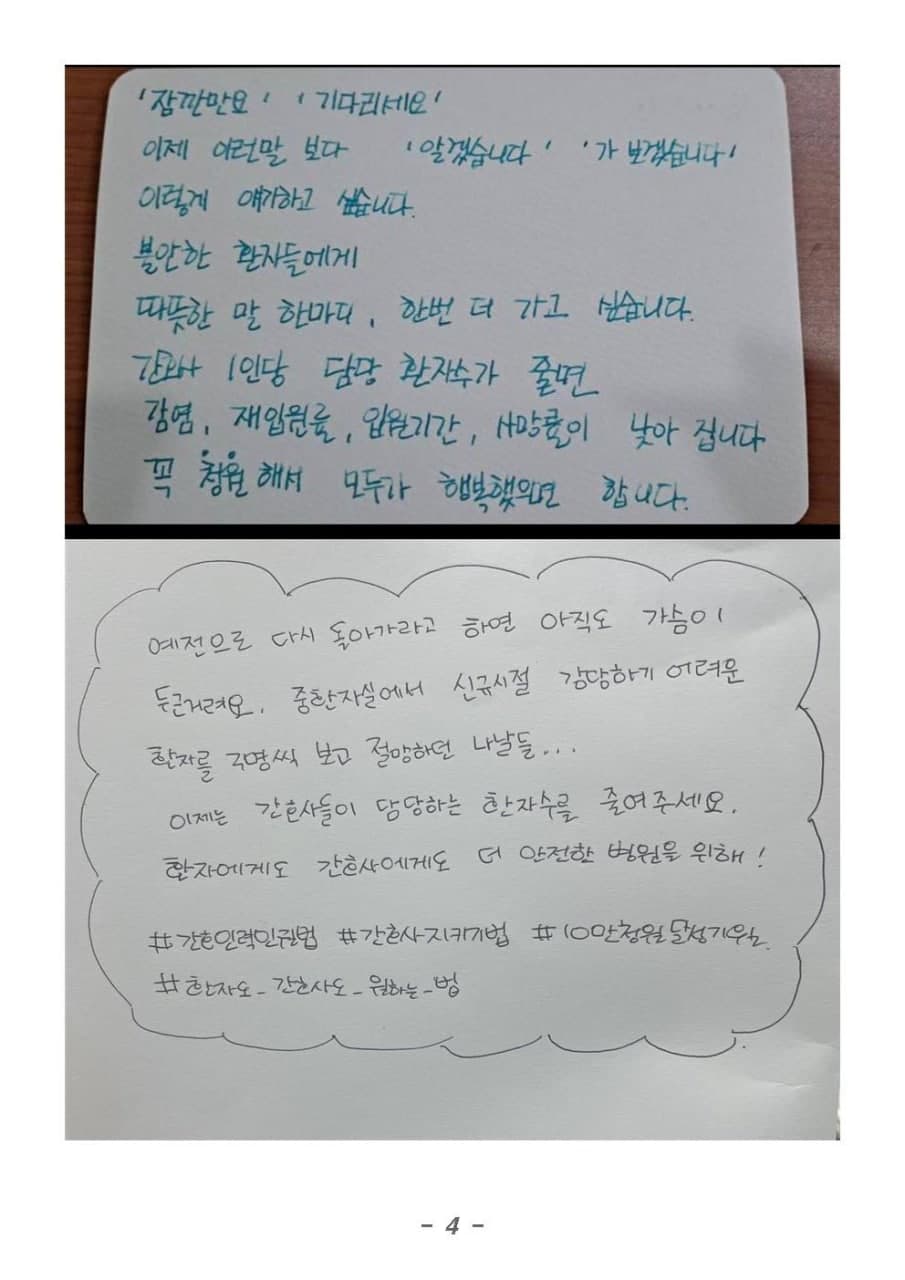 '잠깐만요' '기다리세요'
이제 이런말 보다 '알겠습니다' '가 보겠습니다'
이렇게 얘기하고 싶습니다.
불안한 환자들에게
따뜻한 말 한마디, 한번 더 가고 싶습니다.
간호사 1인당 담당 환자수가 줄면
감염, 재입원률, 입원기간, 사망률이 낮아 집니다
꼭 청원해서 모두가 행복했으면 합니다.
예전으로 다시 돌아가라고 하면 아직도 가슴이
두근거려요. 중환자실에서 신규시절 감당하기 어려운
환자를 국명씩 보고 절망하던 나날들...
이제는 간호사들이 담당하는 환자수를 줄여주세요.
환자에게도 간호사에게도 더 안전한 병원을 위해!
#간호인력인권법 #간호사지키기법 #10만청원달성기원
#환자도_간호사도_원하는_법
- 4 -